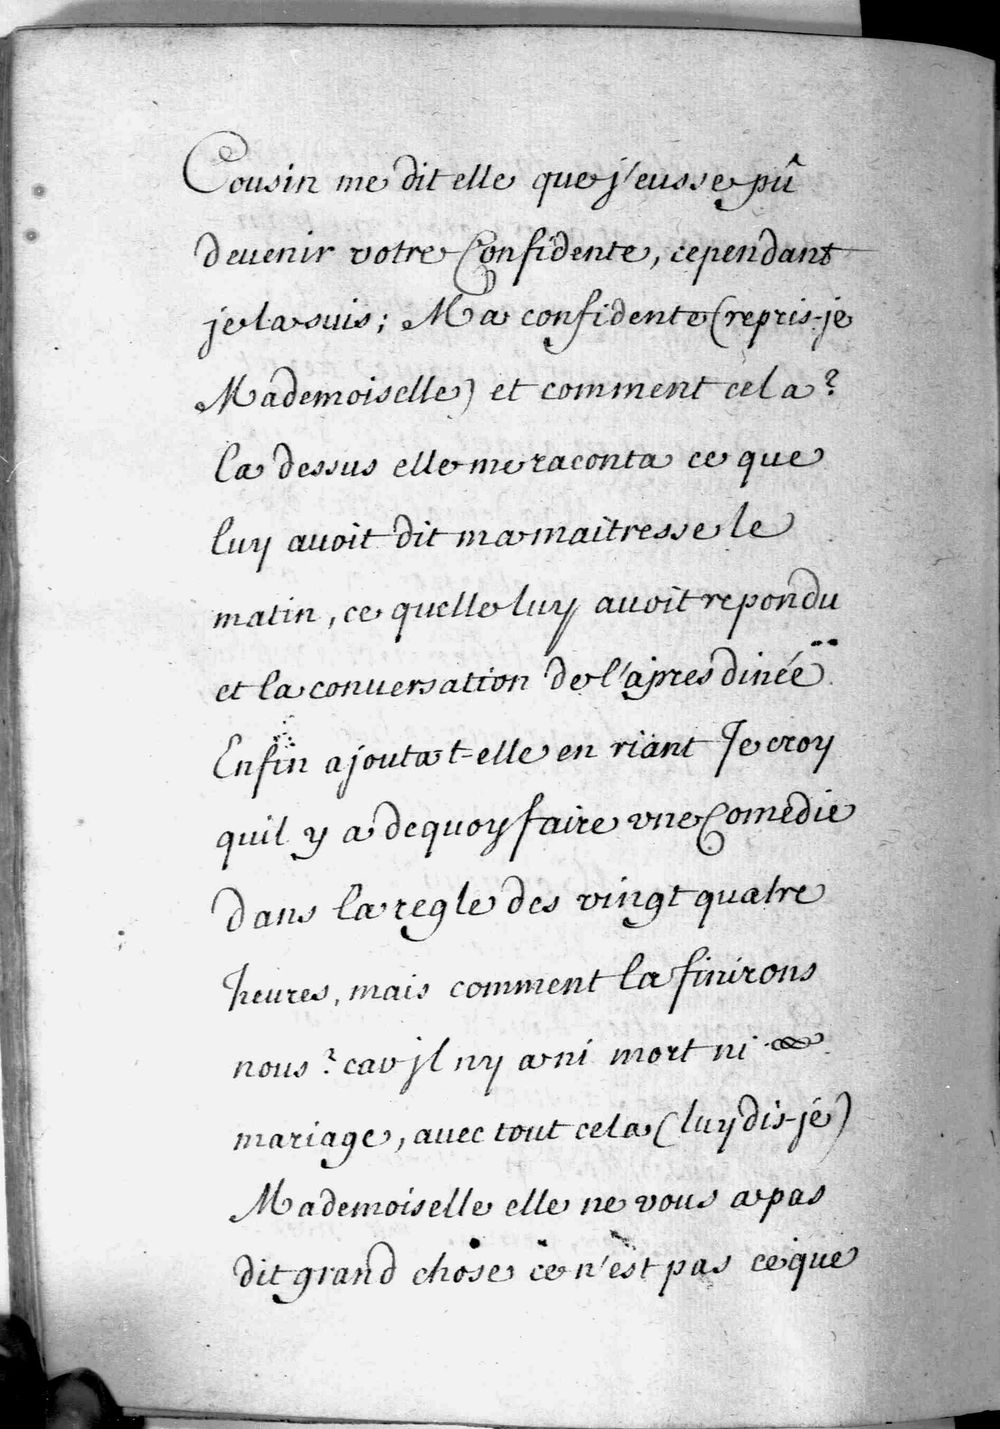 Cousin me dit elle que j'eusse pû
devenir votre Confidente, cependant
je la suis; Ma confidente (repris-je
Mademoiselle) et comment cela?
La dessus elle me raconta ce que
luy avoit dit ma maitresse le
matin, ce quelle luy avoit repondu
et la conuersation de l'apres dinée
Enfin ajouta t-elle en riant Je croy
quil y a dequoy faire vne Comedie
dans la regle des vingt quatre
heures, mais comment la finirons
nous? car jl ny a ni mort ni
mariage, auec tout cela (luy dis-jé)
Mademoiselle elle ne vous a pas
dit grand chose ce n'est pas ce que